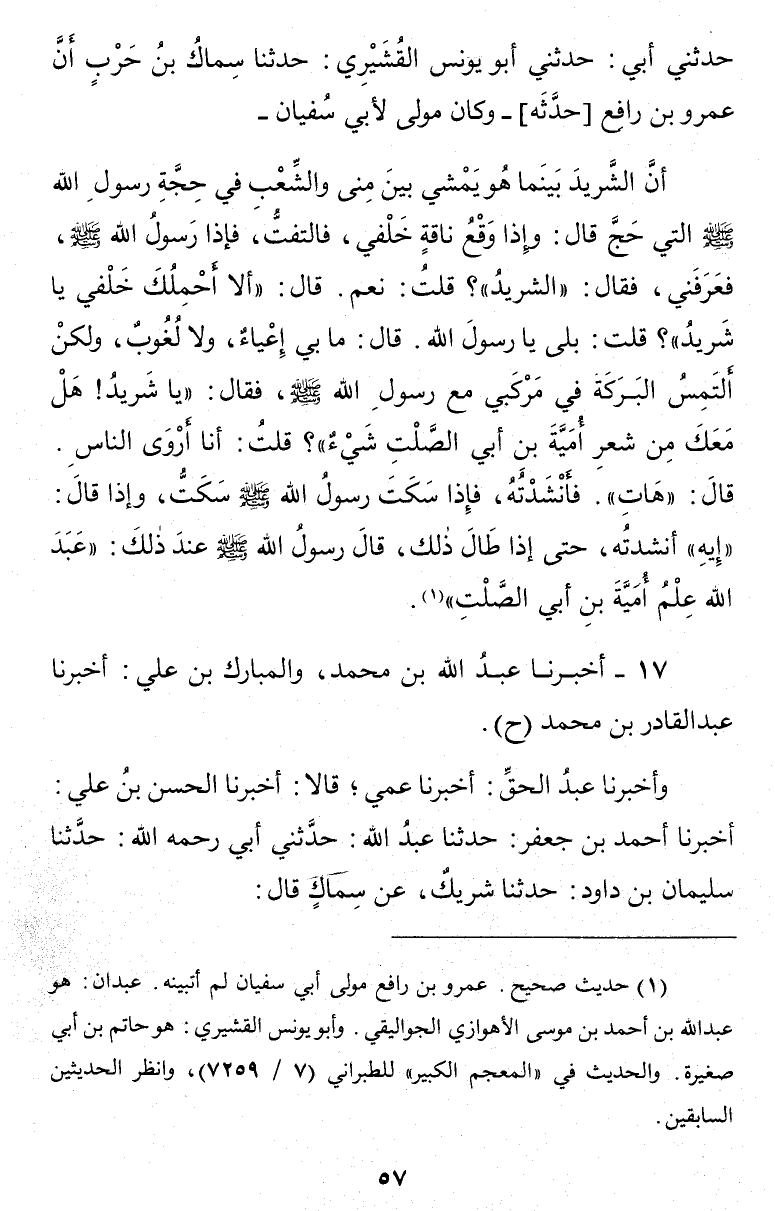 حدثني أبي : حدثني أبو يونس القُشَيْرِي : حدثنا سِماكُ بنُ حَرْبٍ أَنَّ
عمرو بن رافِعٍ [حدَّثَه] ـ وكان مولى لأبي سُفيان ـ
أنَّ الشَّريدَ بَينَما هُو يَمْشي بينَ مِنى والشِّعْبِ في حِجَّةِ رسولِ الله
ﷺ التي حَجَّ قال : وإِذا وَقْعُ ناقةٍ خَلْفي ، فالتفتُّ، فإذا رَسولُ الله ﷺ ،
فعَرَفَني ، فقال : «الشريدُ»؟ قلتُ : نعم . قال : «ألا أَحْمِلُكَ خَلْفي يا
شَريدُ»؟ قلت : بلى يا رسولَ الله . قال : ما بي إِعْياءٌ، ولا لُغُوبٌ، ولكنْ
أَلتَمِسُ البَـرَكَةَ في مَرْكَبي مع رسولِ الله ﷺ ، فقال : «يا شَريدُ! هَلْ
مَعَكَ مِن شعرِ أُمَيَّةَ بن أبي الصَّلْتِ شَيْءٌ»؟ قلتُ : أنا أَرْوَى الناسِ .
قالَ : «هَاتِ» . فأَنْشَدْتُهُ، فإِذا سَكَتَ رسولُ الله ﷺ سَكَتُّ، وإذا قالَ :
«إِيهِ» أنشدتُه، حتى إذا طَالَ ذٰلك، قالَ رسولُ الله ﷺ عندَ ذٰلكَ : «عَبَدَ
الله عِلْمُ أُمَيَّةَ بنِ أبي الصَّلْتِ»(١) .
١٧ ـ أخبـرنـا عبـدُ الله بن محمد، والمبارك بن علي : أخبرنا
عبدالقادر بن محمد (ح) .
وأخبرنا عبدُ الحقِّ : أخبرنا عمي ؛ قالا : أخبرنا الحسن بنُ علي :
أخبرنا أحمد بن جعفر : حدثنا عبدُ الله : حدَّثني أبي رحمه الله : حدَّثنا
سليمان بن داود : حدثنا شريكٌ، عن سِمَاكٍ قال :
(١) حديث صحيح . عمرو بن رافع مولى أبي سفيان لم أتبينه . عبدان : هو
عبدالله بن أحمد بن موسى الأهوازي الجواليقي . وأبو يونس القشيري : هو حاتم بن أبي
صغيرة . والحديث في «المعجم الكبير» للطبراني (٧ / ٧٢٥٩)، وانظر الحديثين
السابقين .
٥٧